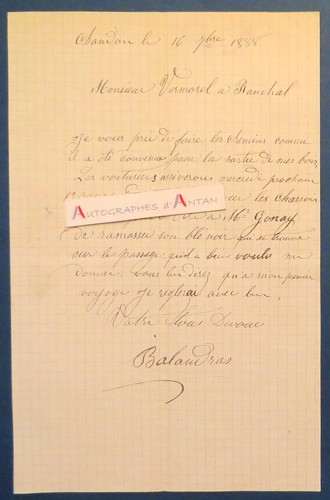 Chandon le 16 7bre 1888
Monsieur Vermorel a Ranchal
Je vous prie de faire les chemins comme
il a été convenue pour la sortie de mes bois
Les voituriers arriverons mercredi prochain
les charrois
AUTOGRAPHES d'ANTAN
a Mr Gonay
de ramasser son blé noir qui se trouve
sur le passage qu'il a bien voulu me
donner. Vous lui direz qu'a mon premier
voyage Je reglerai avec lui.
Votre tous Devoué
Balandras